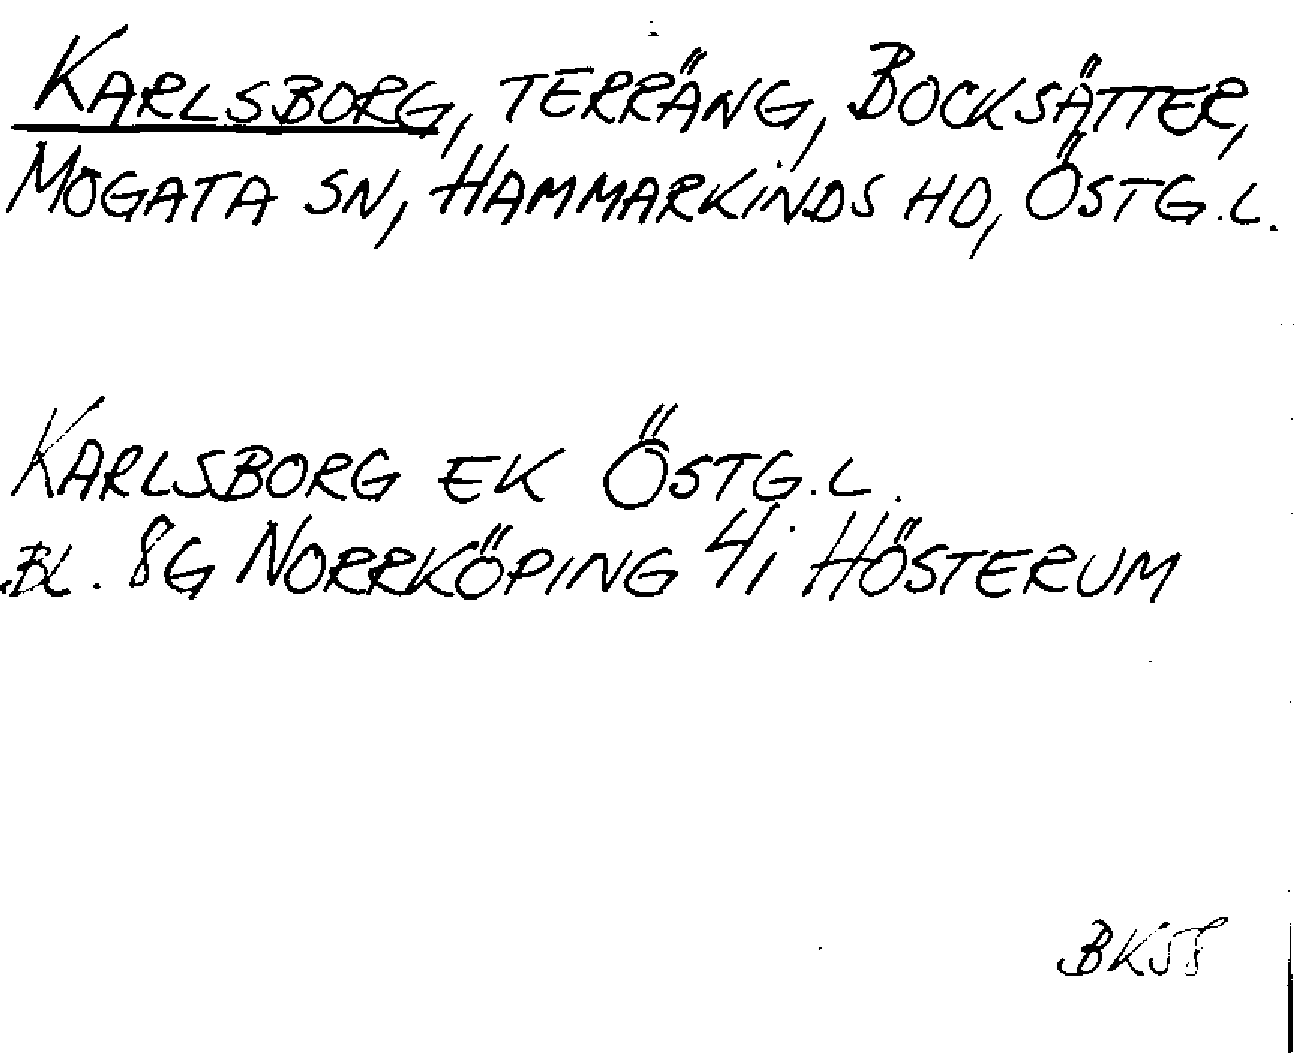 KARLSBORG, TERRÄNG, BOCKSÄTTER,
MOGATA SN, HAMMARKINDS HD, ÖSTG.L.
KARLSBORG EK ÖSTG.L.
BL. 8G NORRKÖPING 4i HÖSTERUM